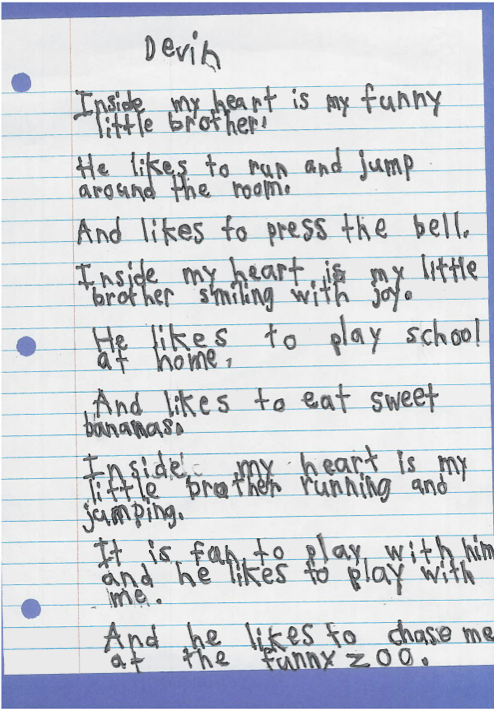 Devin
Inside my heart is my funny
little brother.
He likes to run and jump
around the room.
And likes to press the bell.
Inside my heart is my little
brother smiling with joy.
He likes to play school
at home.
And likes to eat sweet
bananas.
Inside my heart is my
little brother running and
jumping.
It is fan to play with him
and he likes to play with
me.
And he likes to chase me
at the funny zoo.